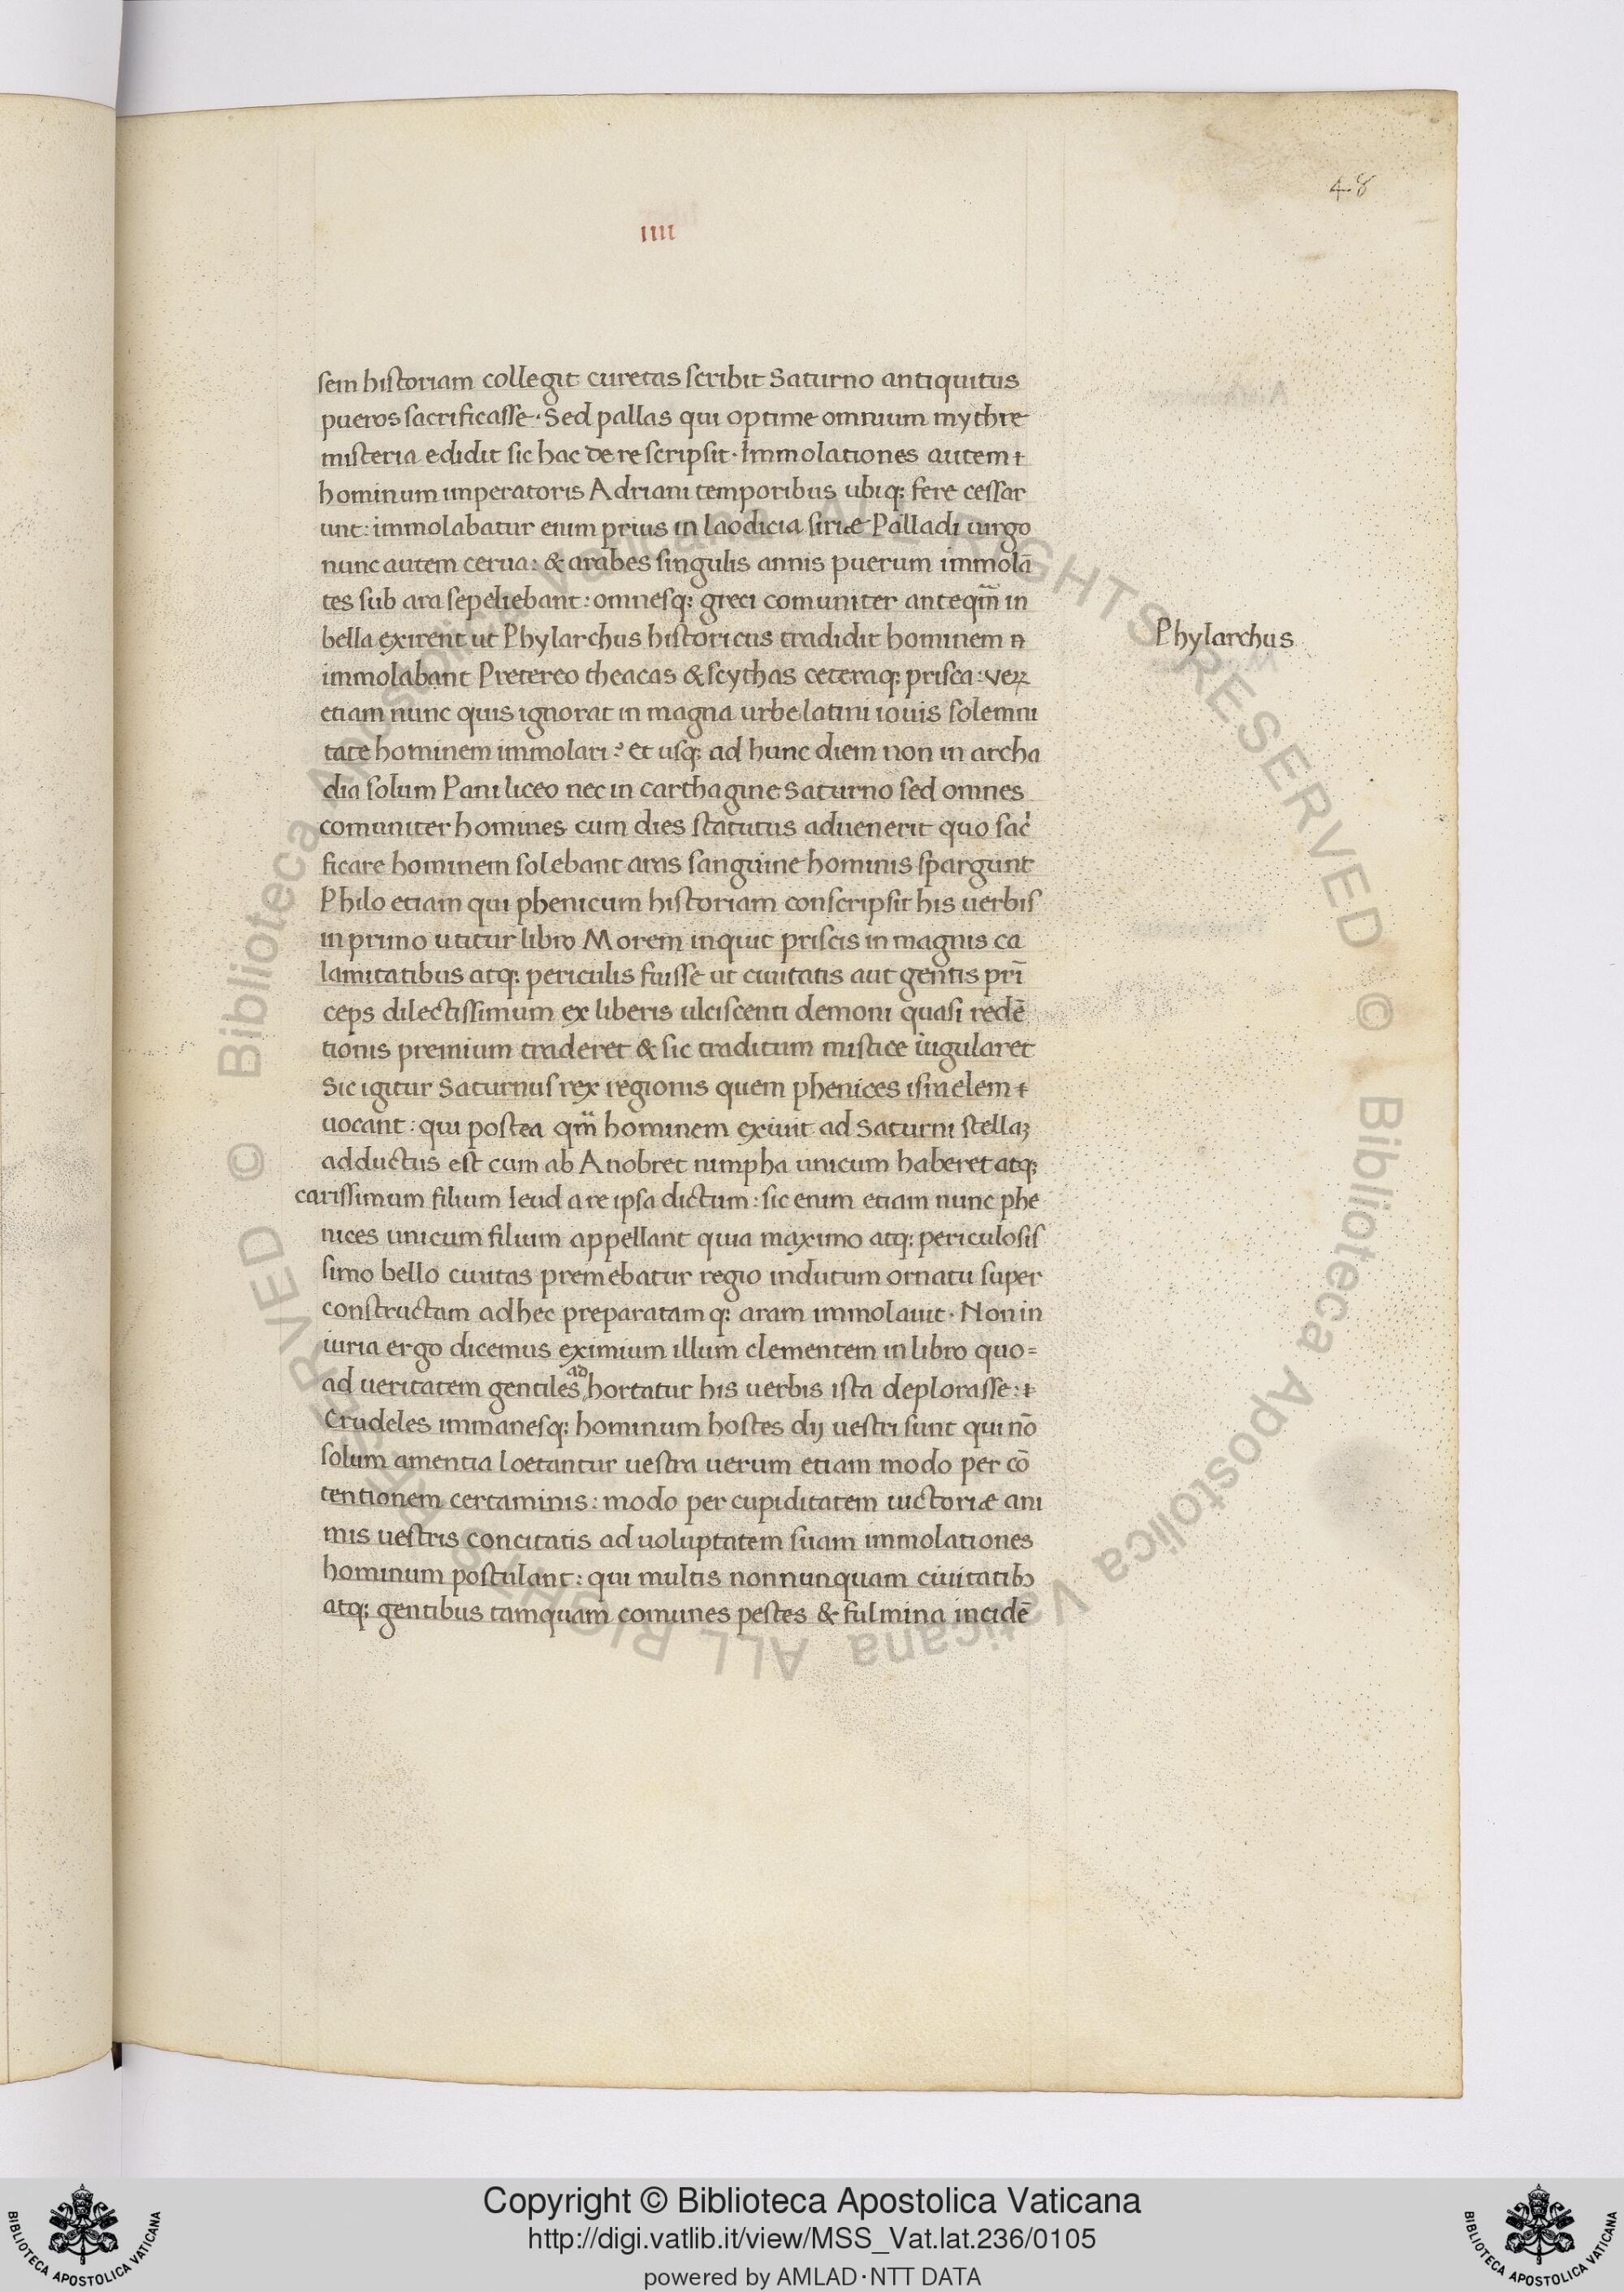 48
IIII
sem historiam collegit curetas scribit Saturno antiquitus
pueros sacrificasse. Sed pallas qui optime omnium mythre
misteria edidit sic hac de re scripsit. Immolationes autem
hominum imperatoris Adriani temporibus ubiq; fere cessar
unt: immolabatur enim prius in laodicia siriæ Palladi uirgo
nunc autem cerua: & arabes singulis annis puerum immolā
tes sub ara sepeliebant: omnesq; greci comuniter anteqm̄ in
bella exirent ut Phylarchus historicus tradidit hominem
Phylarchus
immolabant Pretereo theacas & scythas ceteraq; prisca: veꝝ
etiam nunc quis ignorat in magna urbe latini iouis solemni
tate hominem immolari? et usq; ad hunc diem non in archa
dia solum Pani liceo nec in carthagine Saturno sed omnes
comuniter homines cum dies statutus aduenerit quo sac̓
ficare hominem solebant aras sanguine hominis spargunt
Philo etiam qui phenicum historiam conscripsit his uerbis
in primo utitur libro Morem inquit priscis in magnis ca
lamitatibus atq; periculis fuisse ut ciuitatis aut gentis prī
ceps dilectissimum ex liberis ulciscenti demoni quasi redē
tionis premium traderet & sic traditum mistice iugularet
Sic igitur Saturnus rex regionis quem phenices israelem
uocant: qui postea qm̄ hominem exiuit ad Saturni stellaꝫ
adductus est cum ab Anobret nimpha unicum haberet atq;
carissimum filium Ieud a re ipsa dictum: sic enim etiam nunc phe
nices unicum filium appellant quia maximo atq; periculosis
simo bello ciuitas premebatur regio indutum ornatu super
constructam ad hec preparatamq; aram immolauit. Non in
iuria ergo dicemus eximium illum clementem in libro quo=
ad ueritatem gentiles adhortatur his uerbis ista deplorasse:
Crudeles immanesq; hominum hostes dij uestri sunt qui nō
solum amentia loetantur uestra uerum etiam modo per cō
tentionem certaminis: modo per cupiditatem uictoriæ ani
mis uestris concitatis ad uoluptatem suam immolationes
hominum postulant: qui multis nonnunquam ciuitatibꝫ
atq; gentibus tamquam comunes pestes & fulmina incidē
© Biblioteca Apostolica Vaticana ALL RIGHTS RESERVED © Biblioteca Apostolica Vaticana ALL RIGHTS RESERVED
Copyright © Biblioteca Apostolica Vaticana
http://digi.vatlib.it/view/MSS_Vat.lat.236/0105
powered by AMLAD·NTT DATA
BIBLIOTECA APOSTOLICA VATICANA
BIBLIOTECA APOSTOLICA VATICANA